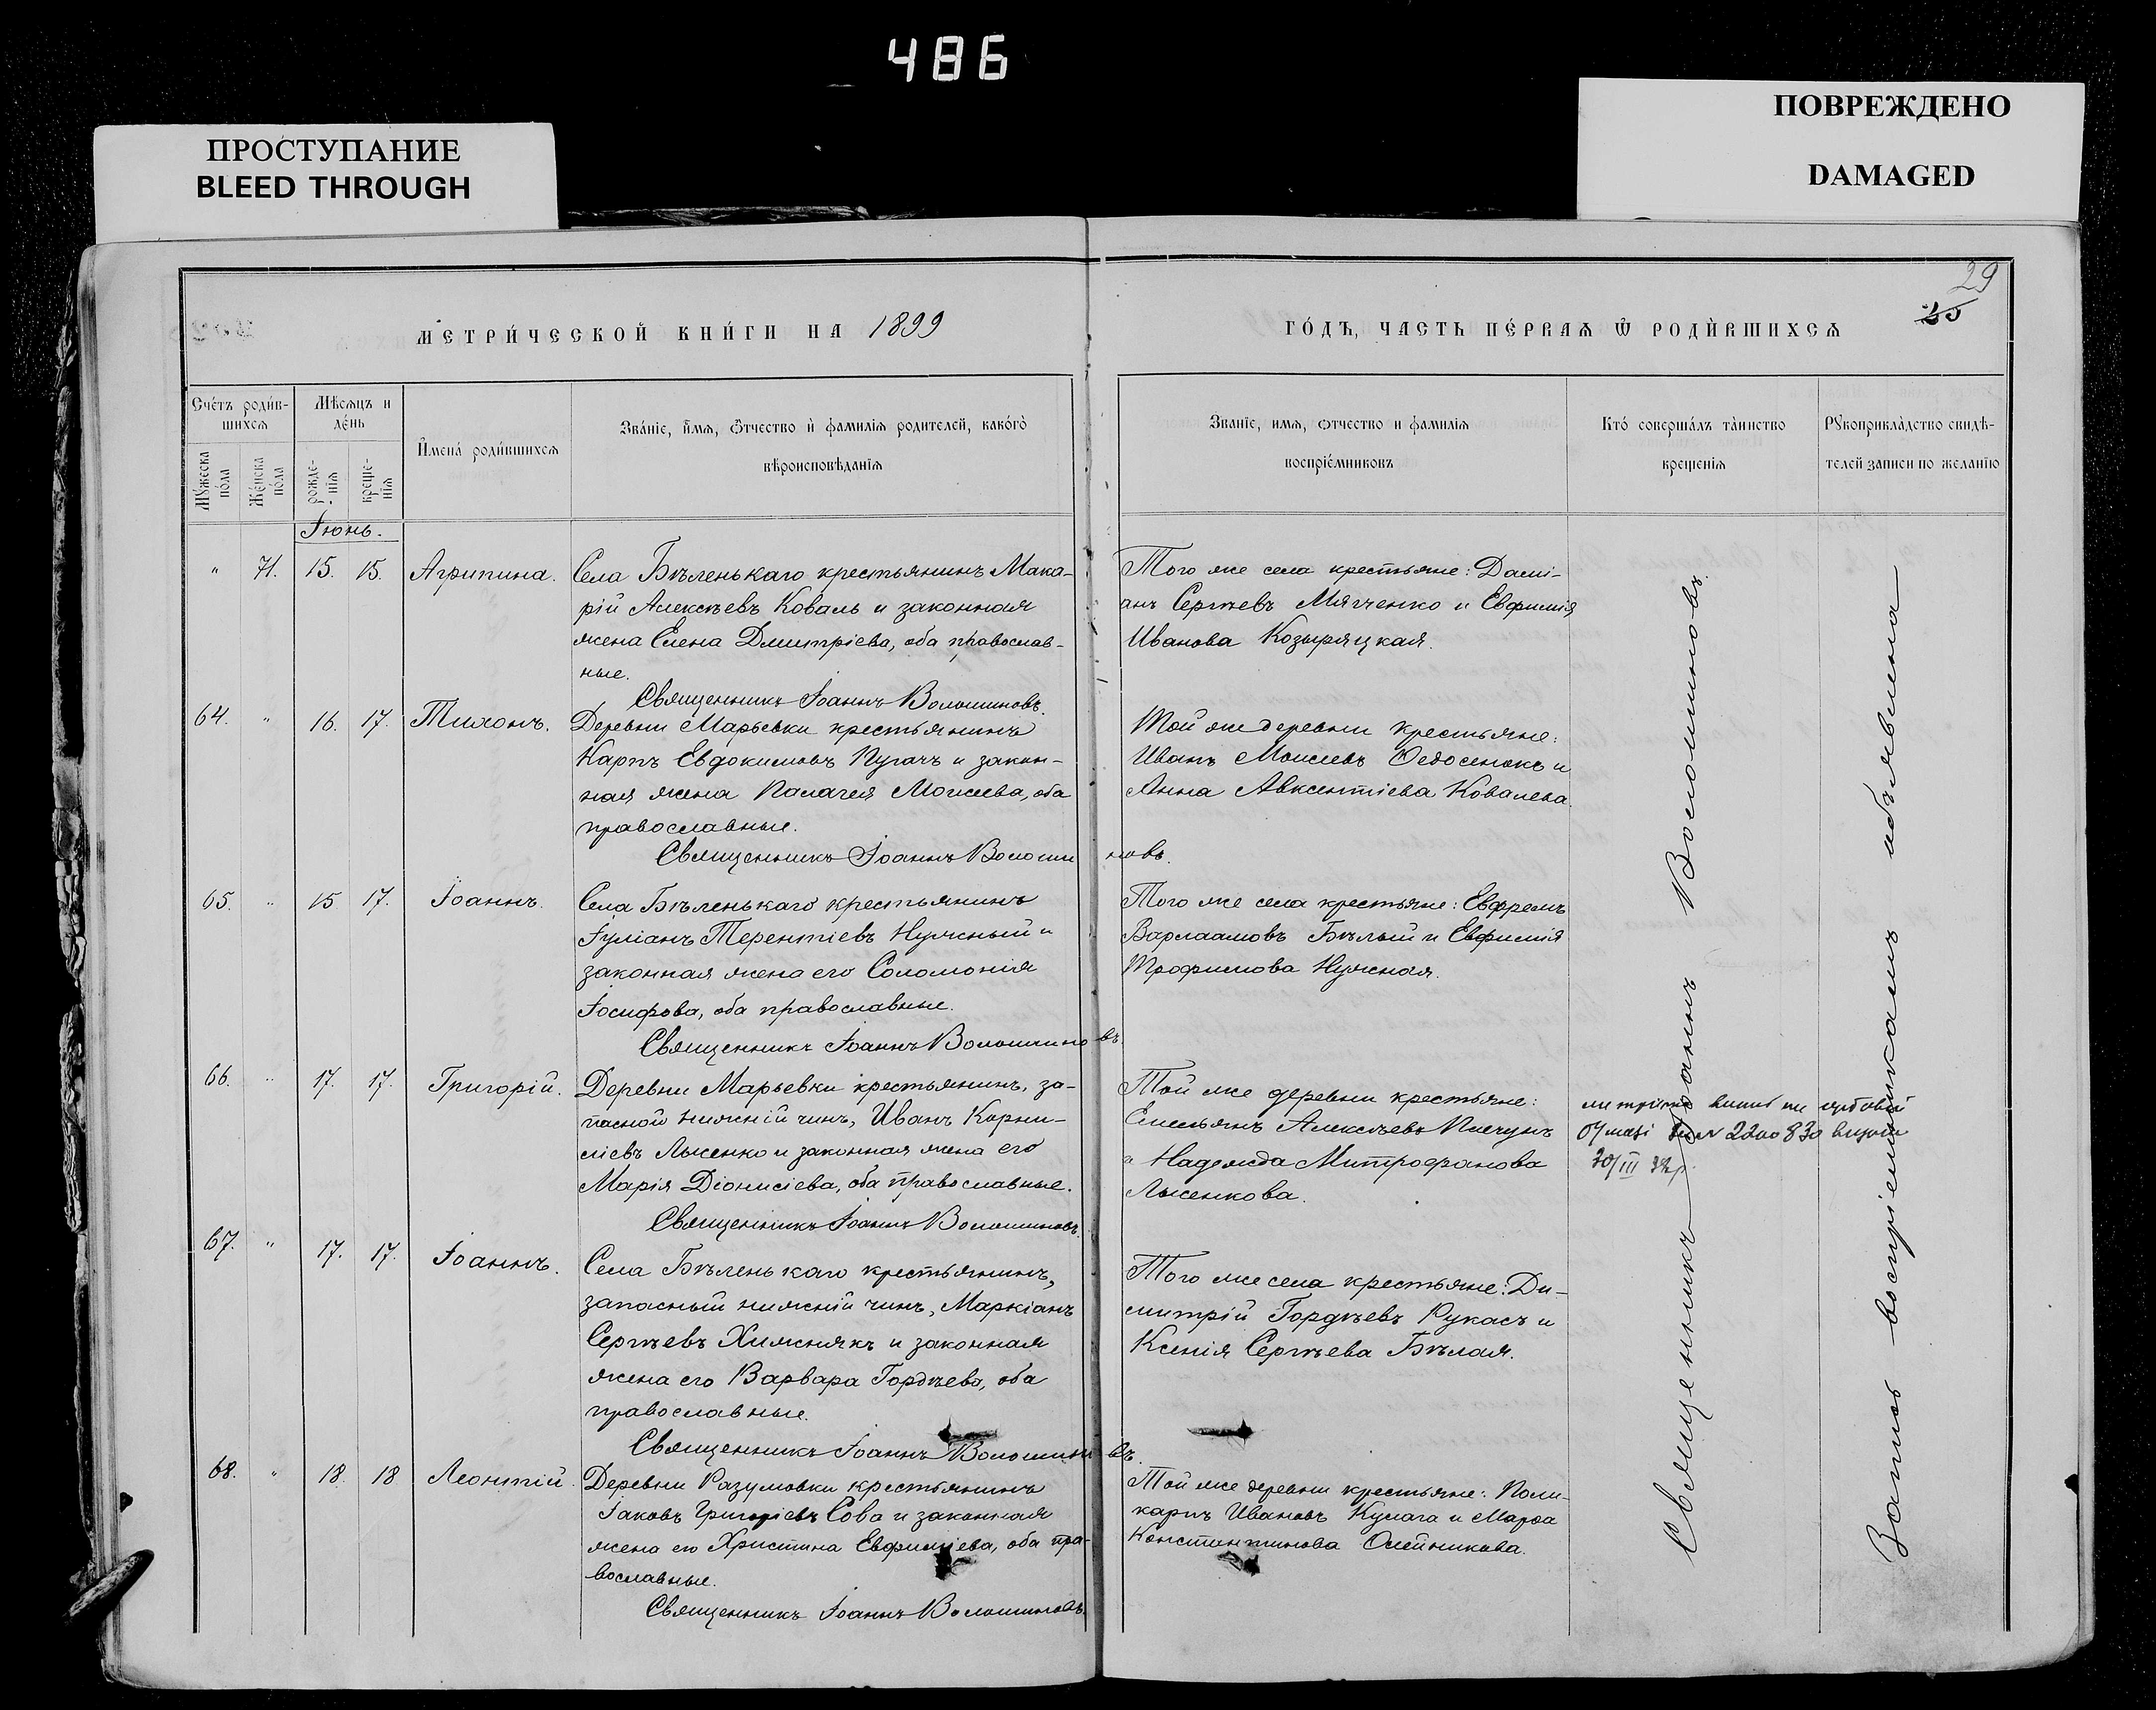 486
ПРОСТУПАНИЕ
BLEED THROUGH
ПОВРЕЖДЕНО
DAMAGED
29
25
МЕТРИ́ЧЕСКОЙ КНИ́ГИ НА 1899
ГО́ДЪ, ЧАСТЬ ПЕ́РВАѦ Ѿ РОДИ́ВШИХСѦ
Сче́тъ роди́в-
шихсѧ
Мѣсѧцъ и
де́нь
Мꙋ́жеска
по́ла
Же́нска
по́ла
рожде-
нїѧ
креще-
нїѧ
И҆мена́ роди́вшихсѧ
Зва́нїе, и҆́мѧ, ѻ҆́тчество и҆ фами́лїѧ роди́телей, како́гѡ
вѣроисповѣ́данїѧ
Зва́нїе, имѧ, ѻтчество и фами́лїѧ
воспрїе́мниковъ
Кто́ соверша́лъ та́инство
креще́нїѧ
Рꙋкоприкла́дство свидѣ́-
телей записи по жела́нїю
Іюнь.
" 71. 15. 15. Агрипина. Села Бѣленькаго крестьянинъ Мака-
рій Алексѣевъ Коваль и законная
жена Елена Дмитріева, оба православ-
ные.
Священникъ Іоаннъ Волошиновъ.
Того же села крестьяне: Дамі-
анъ Сергѣевъ Мягченко и Евфимія
Иванова Козыряцкая.
64. " 16. 17. Тихонъ. Деревни Марьевки крестьянинъ
Карпъ Евдокимовъ Пугачъ и закон-
ная жена Палагея Моисеева, оба
православные.
Священникъ Іоаннъ Волошиновъ.
Той же деревни крестьяне:
Иванъ Моисеевъ Ѳедосенокъ и
Анна Авксентіева Ковалева.
65. " 15. 17. Іоаннъ. Села Бѣленькаго крестьянинъ
Іуліанъ Терентіевъ Нужный и
законная жена его Соломонія
Іосифова, оба православные.
Священникъ Іоаннъ Волошиновъ.
Того же села крестьяне: Евфремъ
Варлаамовъ Бѣлый и Евфимія
Трофимова Нужная.
66. " 17. 17. Григорій. Деревни Марьевки крестьянинъ, за-
пасной нижній чинъ, Иванъ Корни-
ліевъ Лысенко и законная жена его
Марія Діонисіева, оба православные.
Священникъ Іоаннъ Волошиновъ.
Той же деревни крестьяне:
Емельянъ Алексѣевъ
и Надежда Митрофанова
Лысенкова.
2200830
30/III 32р.
67. " 17. 17. Іоаннъ. Села Бѣленькаго крестьянинъ,
запасный нижній чинъ, Маркіанъ
Сергѣевъ Хижнякъ и законная
жена его Варвара Гордѣева, оба
православные.
Священникъ Іоаннъ Волошиновъ.
Того же села крестьяне: Ди-
митрій Гордѣевъ Рукасъ и
Ксенія Сергѣева Бѣлая.
68. " 18. 18 Леонтій. Деревни Разумовки крестьянинъ
Іаковъ Григоріевъ Сова и законная
жена его Христина Евфиміева, оба пра-
вославные.
Священникъ Іоаннъ Волошиновъ.
Той же деревни крестьяне: Поли-
карпъ Ивановъ Кулага и Марѳа
Константинова Олейникова.
Священникъ Іоаннъ Волошиновъ.
Запись воспріемникамъ объявлена